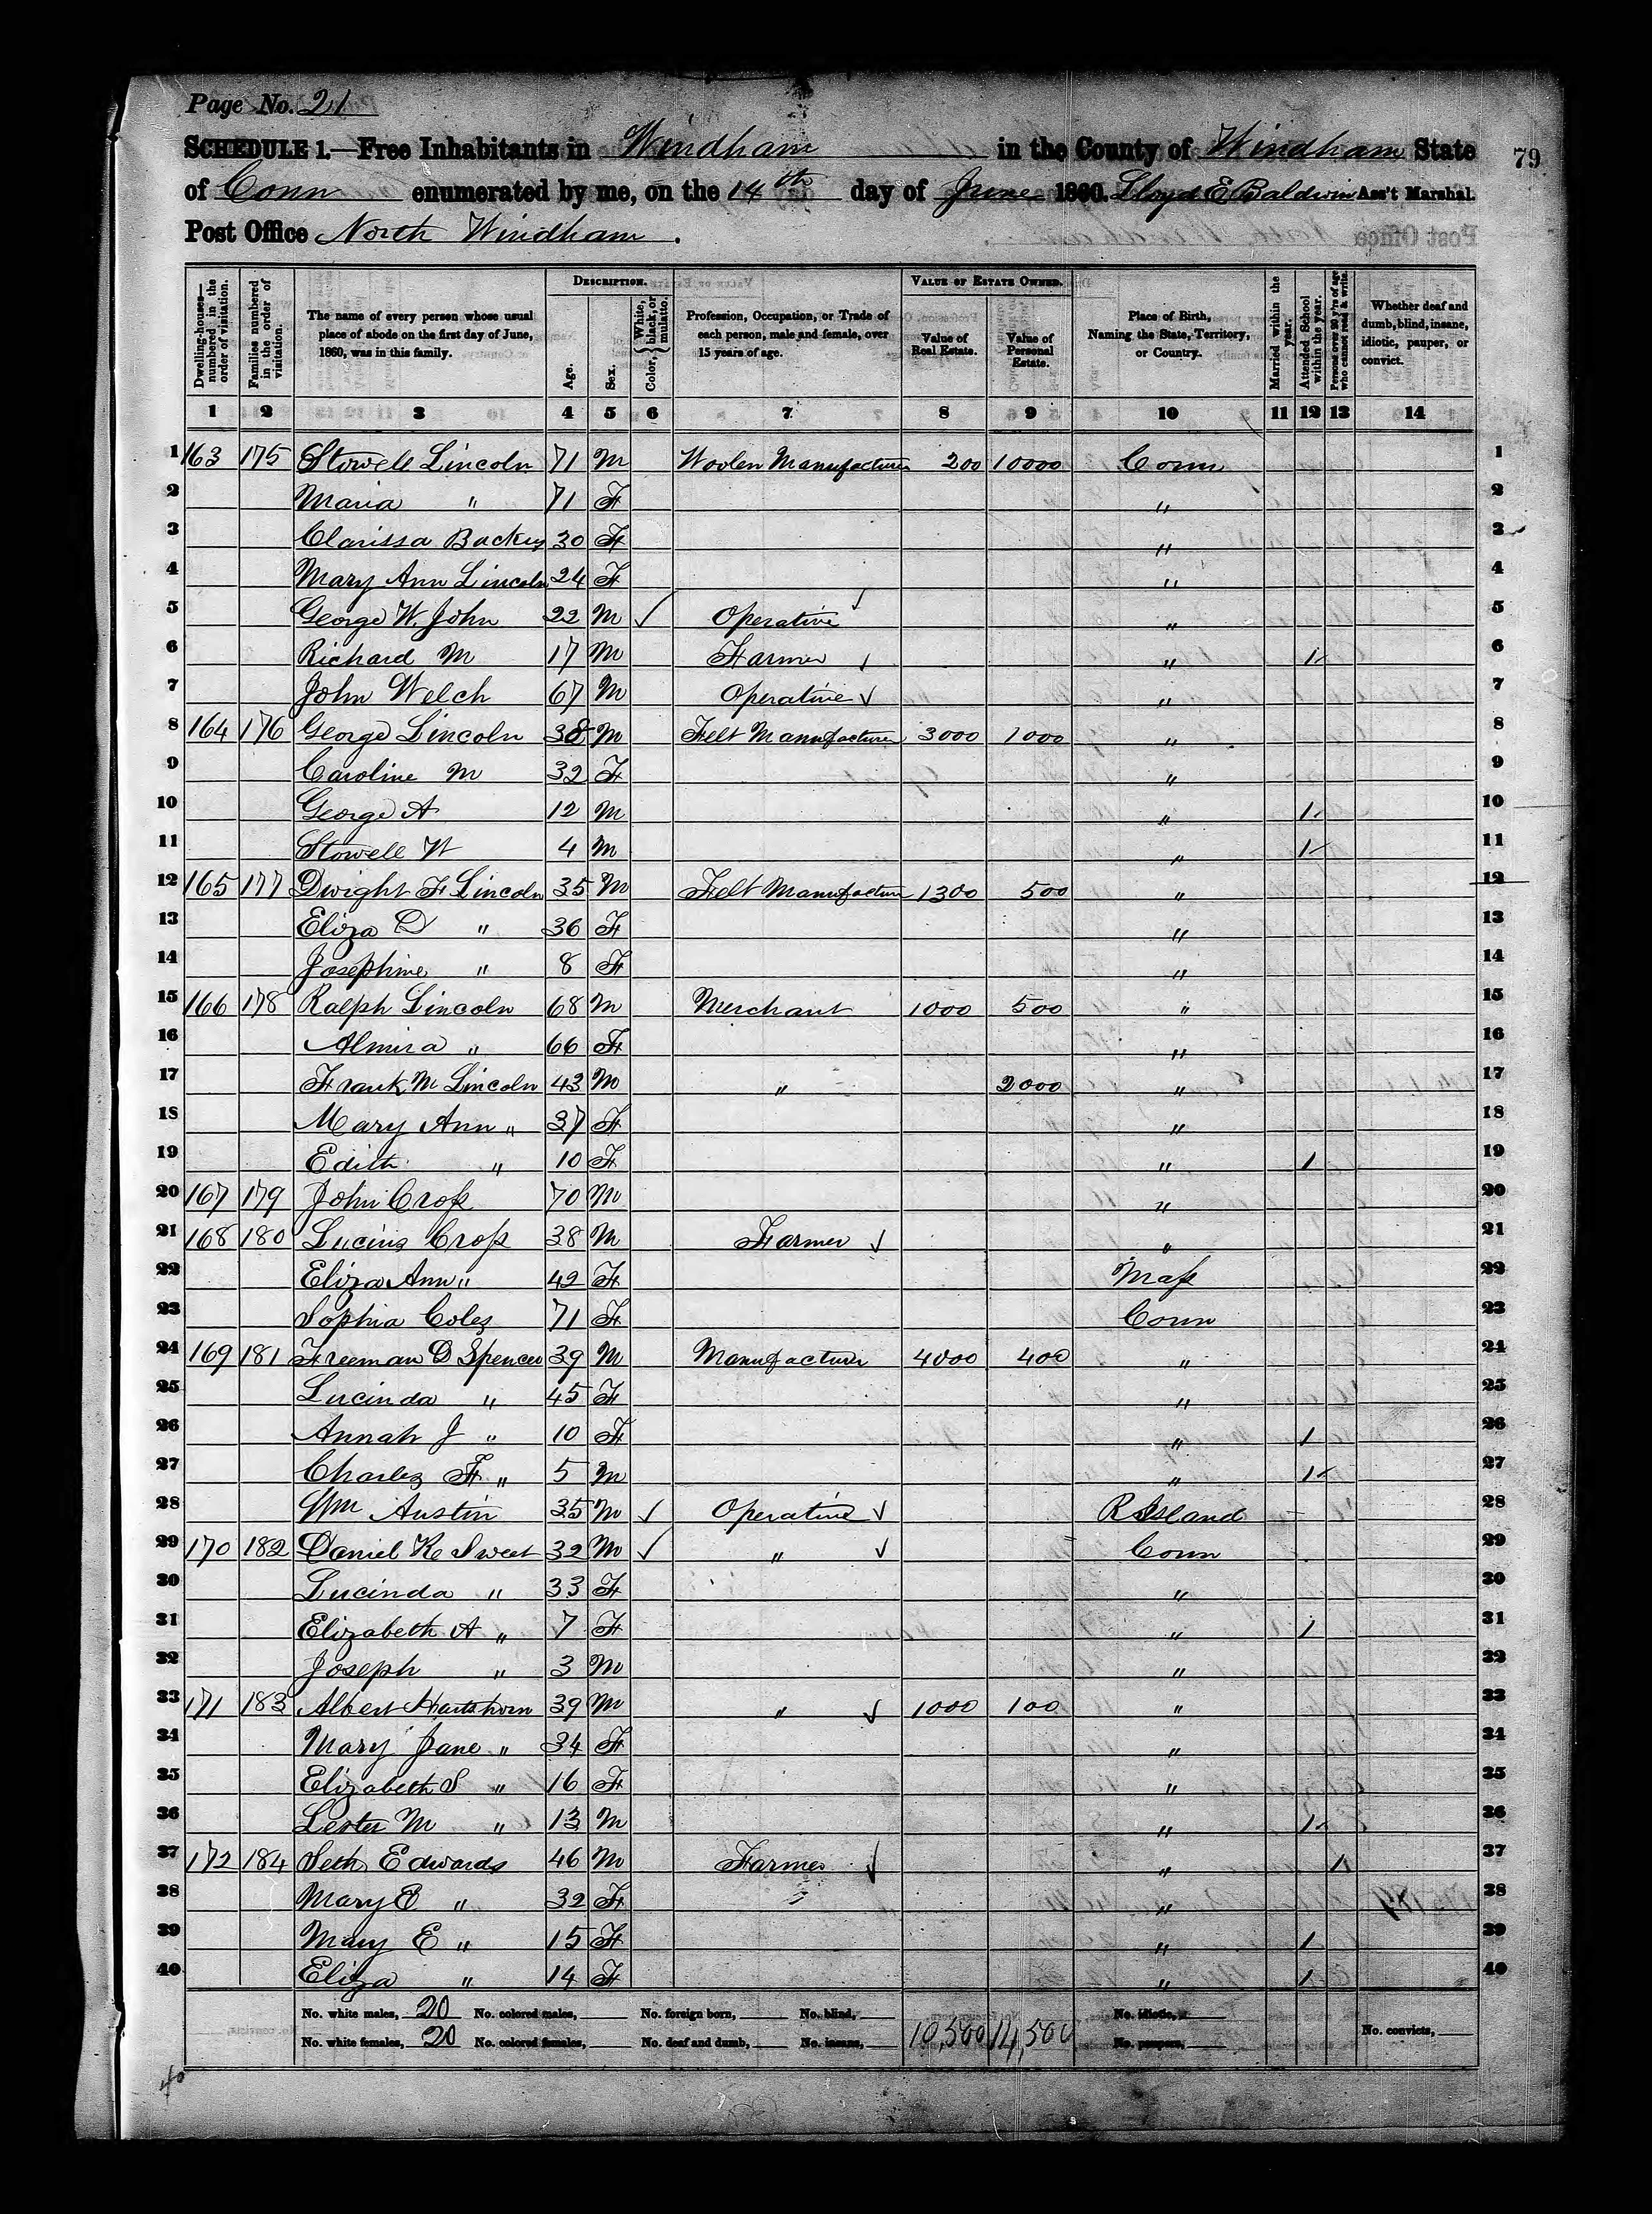 Page No. 21
SCHEDULE 1.—Free Inhabitants in Windham in the County of Windham State
79
of Conn enumerated by me, on the 14th day of June 1860. Lloyd E Baldwin Ass't Marshal.
Post Office North Windham.
DESCRIPTION. VALUE OF ESTATE OWNED.
Dwelling-houses—numbered in the order of visitation. Families numbered in the order of visitation. The name of every person whose usual place of abode on the first day of June, 1860, was in this family. Age. Sex. Color, { White, black, or mulatto. Profession, Occupation, or Trade of each person, male and female, over 15 years of age. Value of Real Estate. Value of Personal Estate. Place of Birth, Naming the State, Territory, or Country. Married within the year. Attended School within the year. Persons over 20 y'rs of age who cannot read & write. Whether deaf and dumb, blind, insane, idiotic, pauper, or convict.
1 2 3 4 5 6 7 8 9 10 11 12 13 14
1 163 175 Stowell Lincoln 71 M Woolen Manufacturer 200 10000 Conn 1
2 Maria " 71 F " 2
3 Clarissa Backus 30 F " 3
4 Mary Ann Lincoln 24 F " 4
5 George W. John 22 M ✓ Operative ✓ " 5
6 Richard M 17 M Farmer ✓ " 1 6
7 John Welch 67 M Operative ✓ " 7
8 164 176 George Lincoln 38 M Felt Manufacturer 3000 1000 " 8
9 Caroline M 32 F " 9
10 George A 12 M " 1 10
11 Stowell W 4 M " 1 11
12 165 177 Dwight F Lincoln 35 M Felt Manufacture 1300 500 " 12
13 Eliza D " 36 F " 13
14 Josephine " 8 F " 14
15 166 178 Ralph Lincoln 68 M Merchant 1000 500 " 15
16 Almira " 66 F " 16
17 Frank M Lincoln 43 M " 2000 " 17
18 Mary Ann " 37 F " 18
19 Edith " 10 F " 1 19
20 167 179 John Cross 70 M " 20
21 168 180 Lucius Cross 38 M Farmer ✓ " 21
22 Eliza Ann " 42 F Mass 22
23 Sophia Coles 71 F Conn 23
24 169 181 Freeman D Spencer 39 M Manufacturer 4000 400 " 24
25 Lucinda " 45 F " 25
26 Annah J " 10 F " 1 26
27 Charles F " 5 M " 1 27
28 Wm Austin 35 M ✓ Operative ✓ R Island 28
29 170 182 Daniel K Sweet 32 M ✓ " ✓ Conn 29
30 Lucinda " 33 F " 30
31 Elizabeth A " 7 F " 1 31
32 Joseph " 3 M " 32
33 171 183 Albert Hartshorn 39 M " ✓ 1000 100 " 33
34 Mary Jane " 34 F " 34
35 Elizabeth S " 16 F " 35
36 Lester M " 13 M " 1 36
37 172 184 Seth Edwards 46 M Farmer ✓ " 1 37
38 Mary E " 32 F " 38
39 Mary E " 15 F " 1 39
40 Eliza " 14 F " 1 40
No. white males, 20 No. colored males, No. foreign born, No. blind, No. idiotic,
No. white females, 20 No. colored females, No. deaf and dumb, No. insane, 10,500 14,500 No. paupers, No. convicts,
40